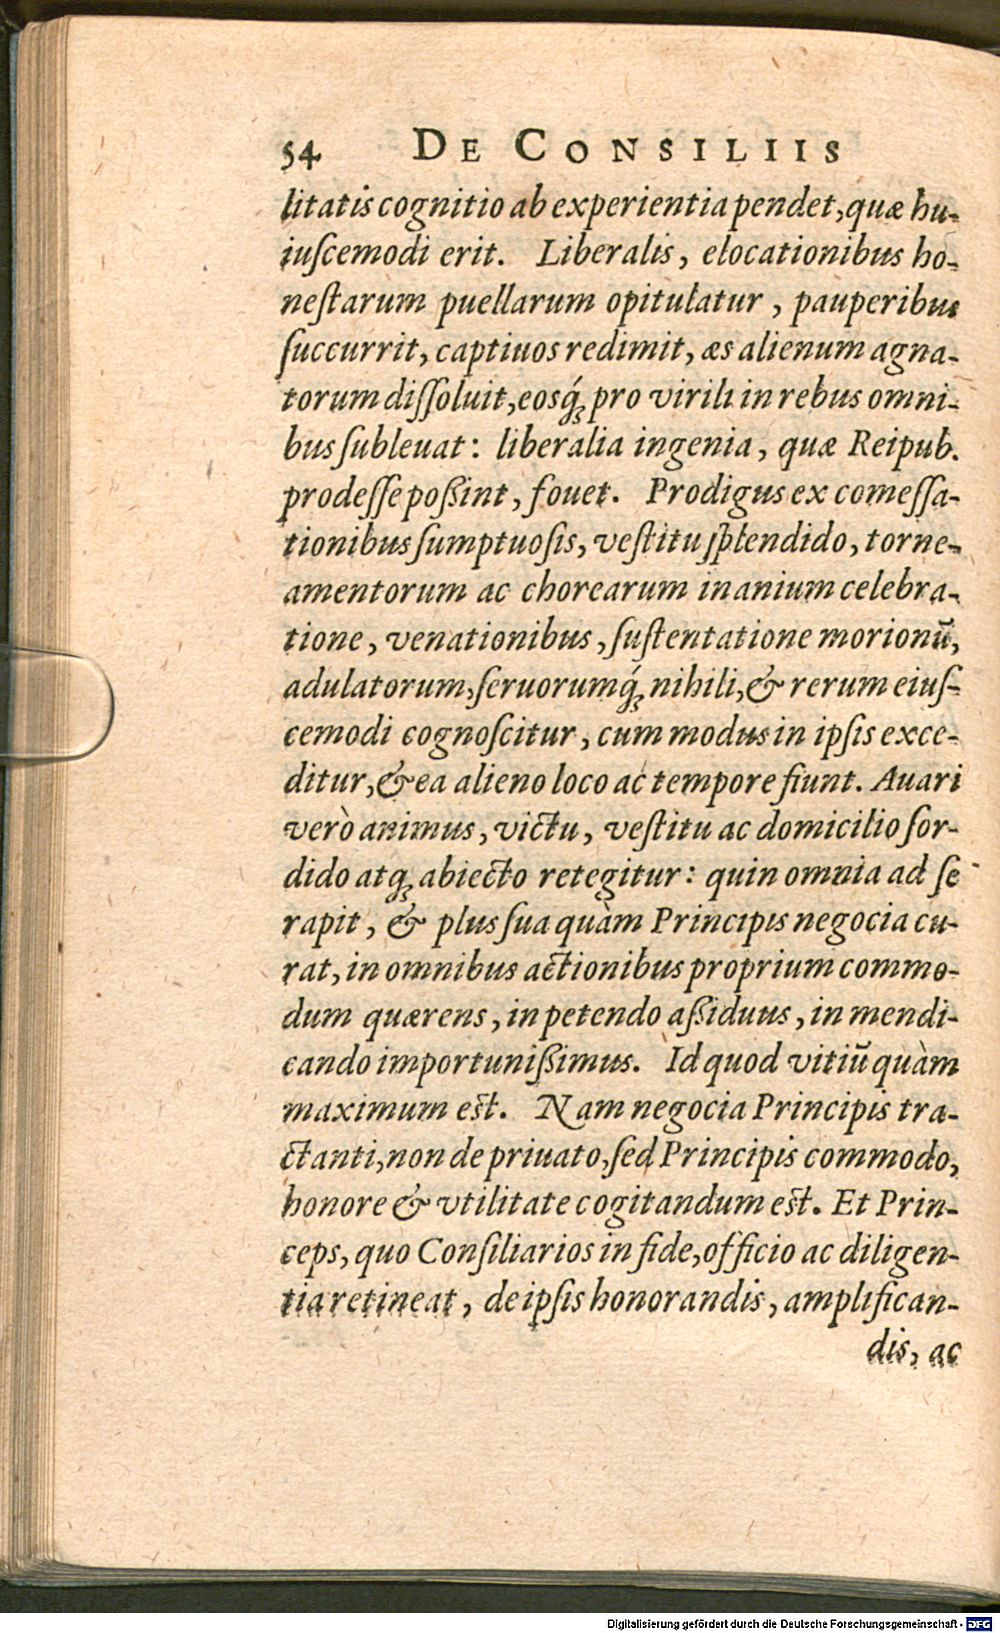 54 DE CONSILIIS
litatis cognitio ab experientia pendet, quæ hu-
iuſcemodi erit. Liberalis, elocationibus ho-
neſtarum puellarum opitulatur, pauperibus
ſuccurrit, captiuos redimit, æs alienum agna-
torum diſſoluit, eosq́ꝫ pro virili in rebus omni-
bus ſubleuat: liberalia ingenia, quæ Reipub.
prodeſſe poßint, fouet. Prodigus ex comeſſa-
tionibus ſumptuoſis, veſtitu ſplendido, torne-
amentorum ac chorearum inanium celebra-
tione, venationibus, ſuſtentatione morionū,
adulatorum, ſeruorumq́ꝫ nihili, & rerum eiuſ-
cemodi cognoſcitur, cum modus in ipſis exce-
ditur, & ea alieno loco ac tempore fiunt. Auari
verò animus, victu, veſtitu ac domicilio ſor-
dido atqꝫ abiecto retegitur: quin omnia ad ſe
rapit, & plus ſua quàm Principis negocia cu-
rat, in omnibus actionibus proprium commo-
dum quærens, in petendo aßiduus, in mendi-
cando importunißimus. Id quod vitiū quàm
maximum est. Nam negocia Principis tra-
ctanti, non de priuato, ſed Principis commodo,
honore & vtilitate cogitandum est. Et Prin-
ceps, quo Conſiliarios in fide, officio ac diligen-
tia retineat, de ipſis honorandis, amplifican-
dis, ac
Digitalisierung gefördert durch die Deutsche Forschungsgemeinschaft - DFG